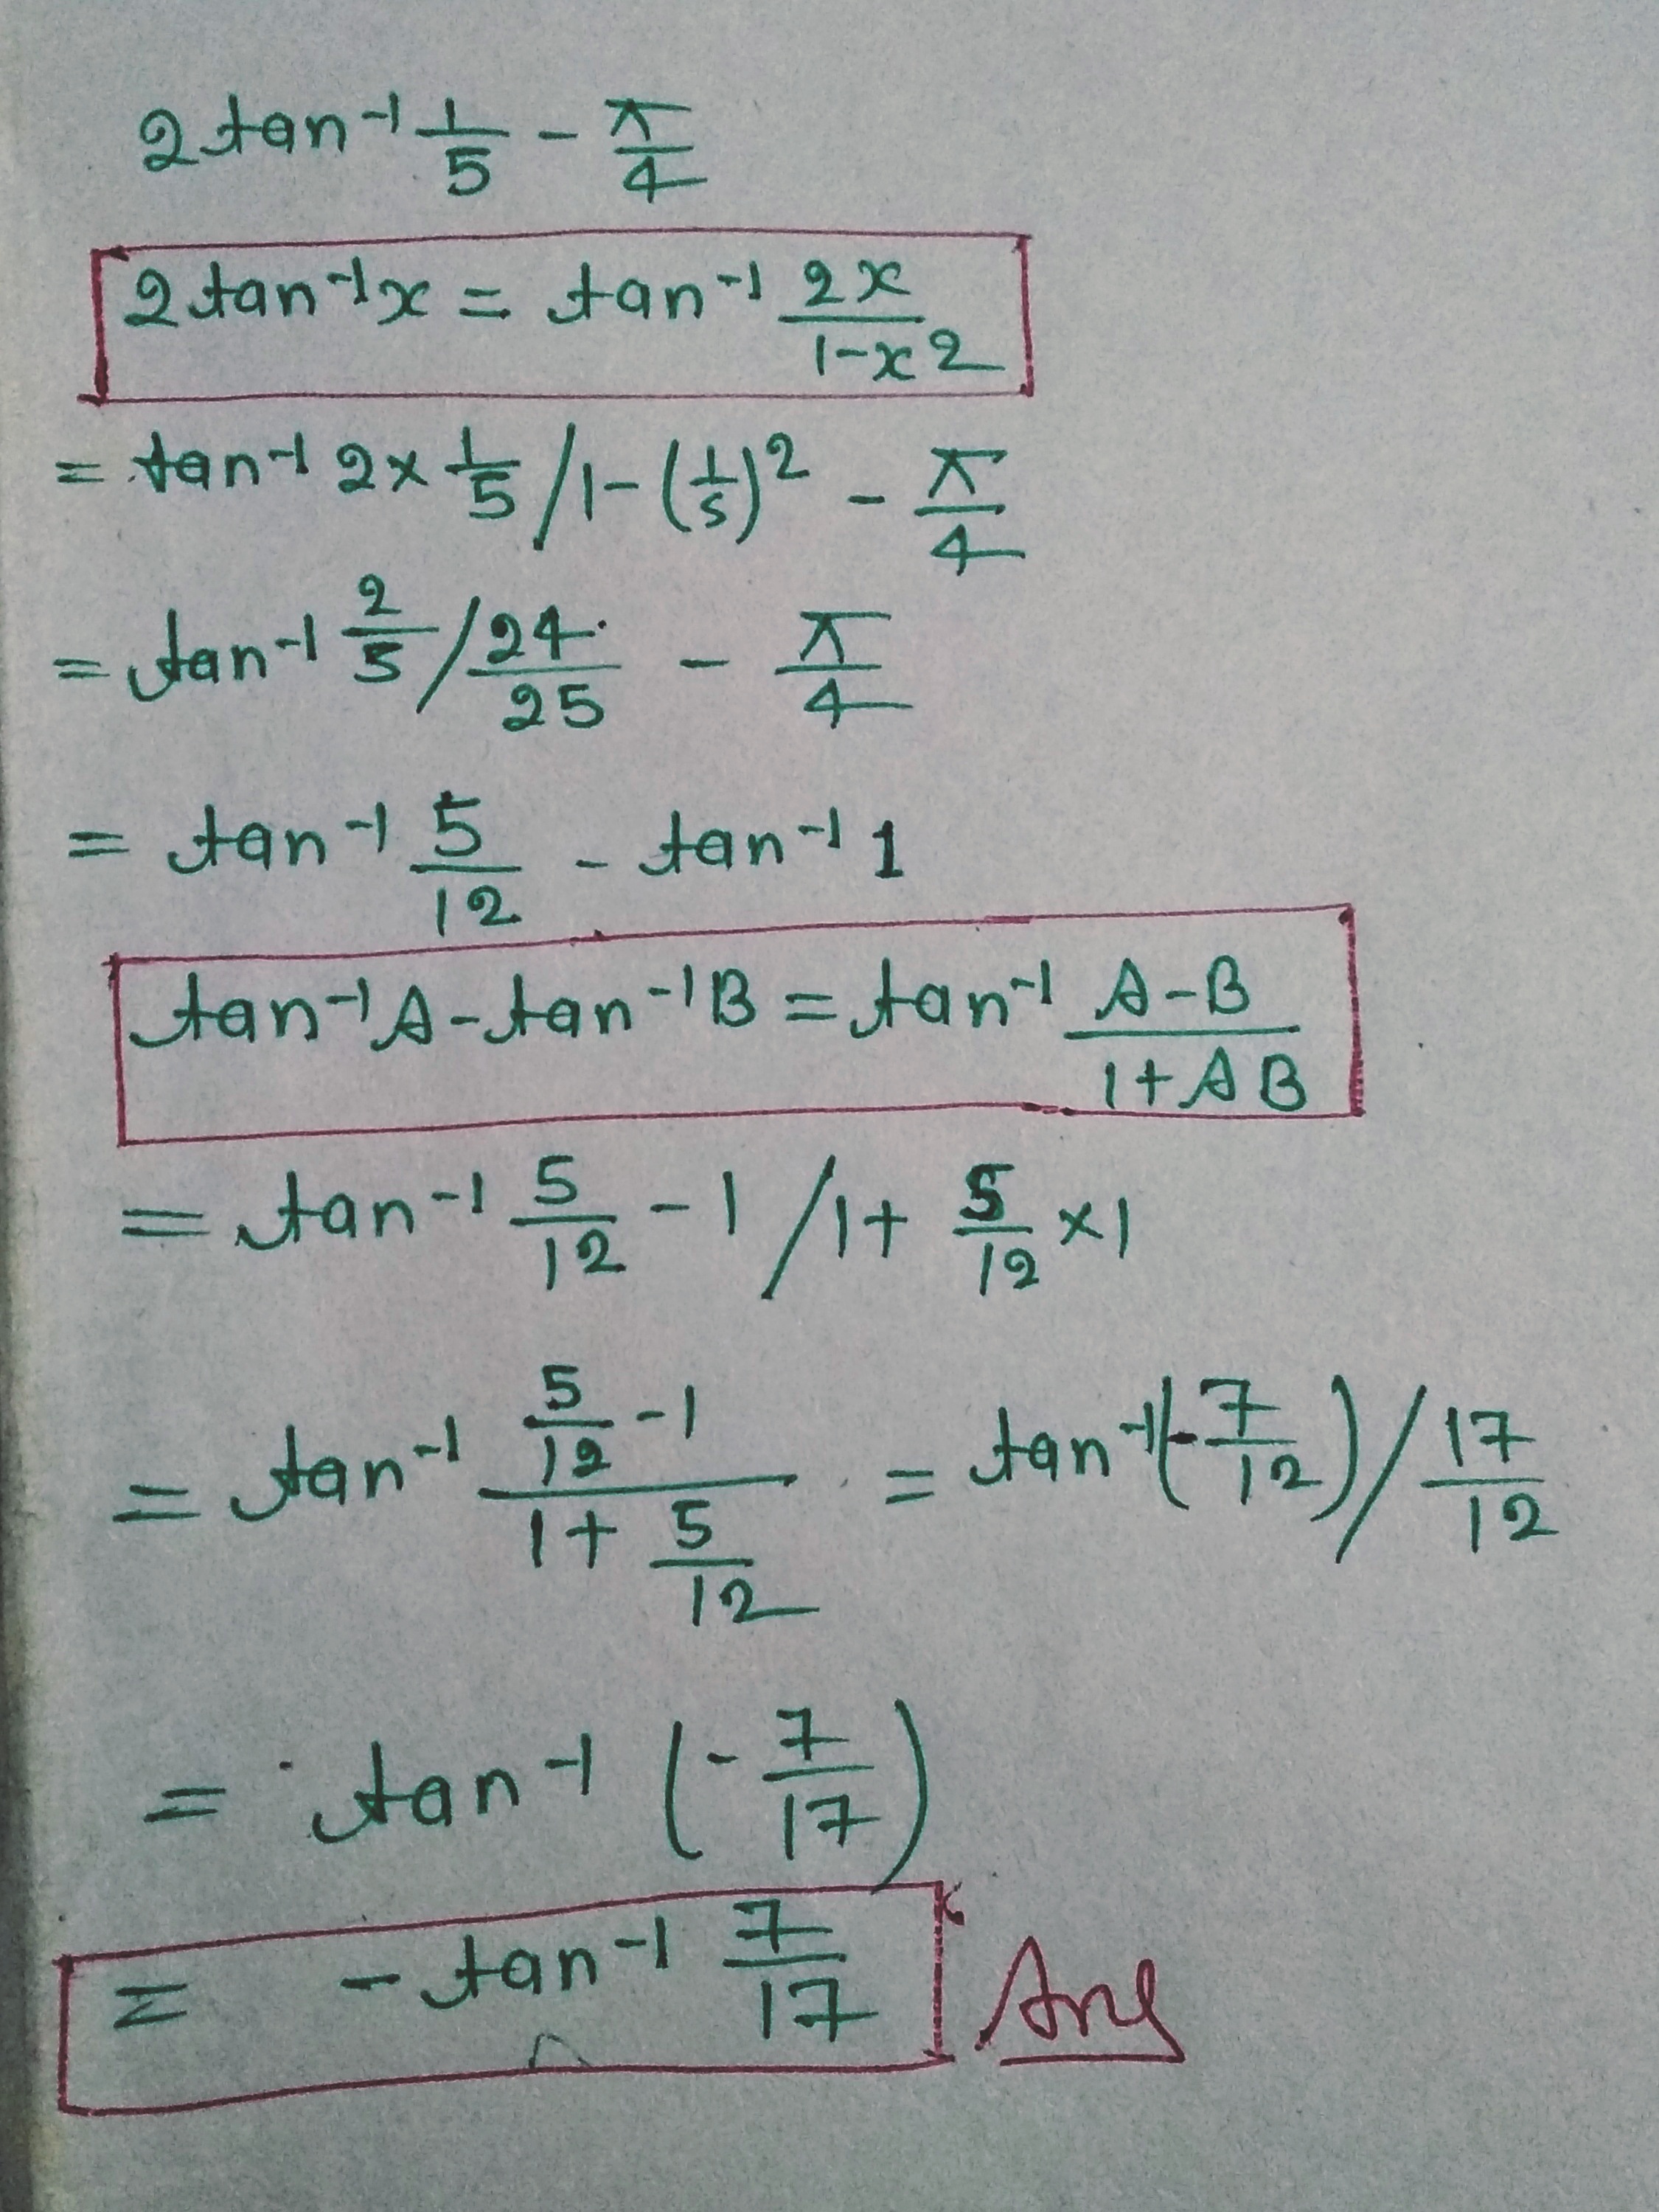 2 tan⁻¹ 1/5 - π/4
2 tan⁻¹x = tan⁻¹ 2x/1-x2
= tan⁻¹ 2 × 1/5 / 1 - (1/5)² - π/4
= tan⁻¹ 2/5 / 24/25 - π/4
= tan⁻¹ 5/12 - tan⁻¹ 1
tan⁻¹A - tan⁻¹B = tan⁻¹ A-B/1+AB
= tan⁻¹ 5/12 - 1 / 1 + 5/12 × 1
= tan⁻¹ 5/12 - 1 / 1 + 5/12 = tan⁻¹(-7/12) / 17/12
= tan⁻¹ (-7/17)
= - tan⁻¹ 7/17 Ans